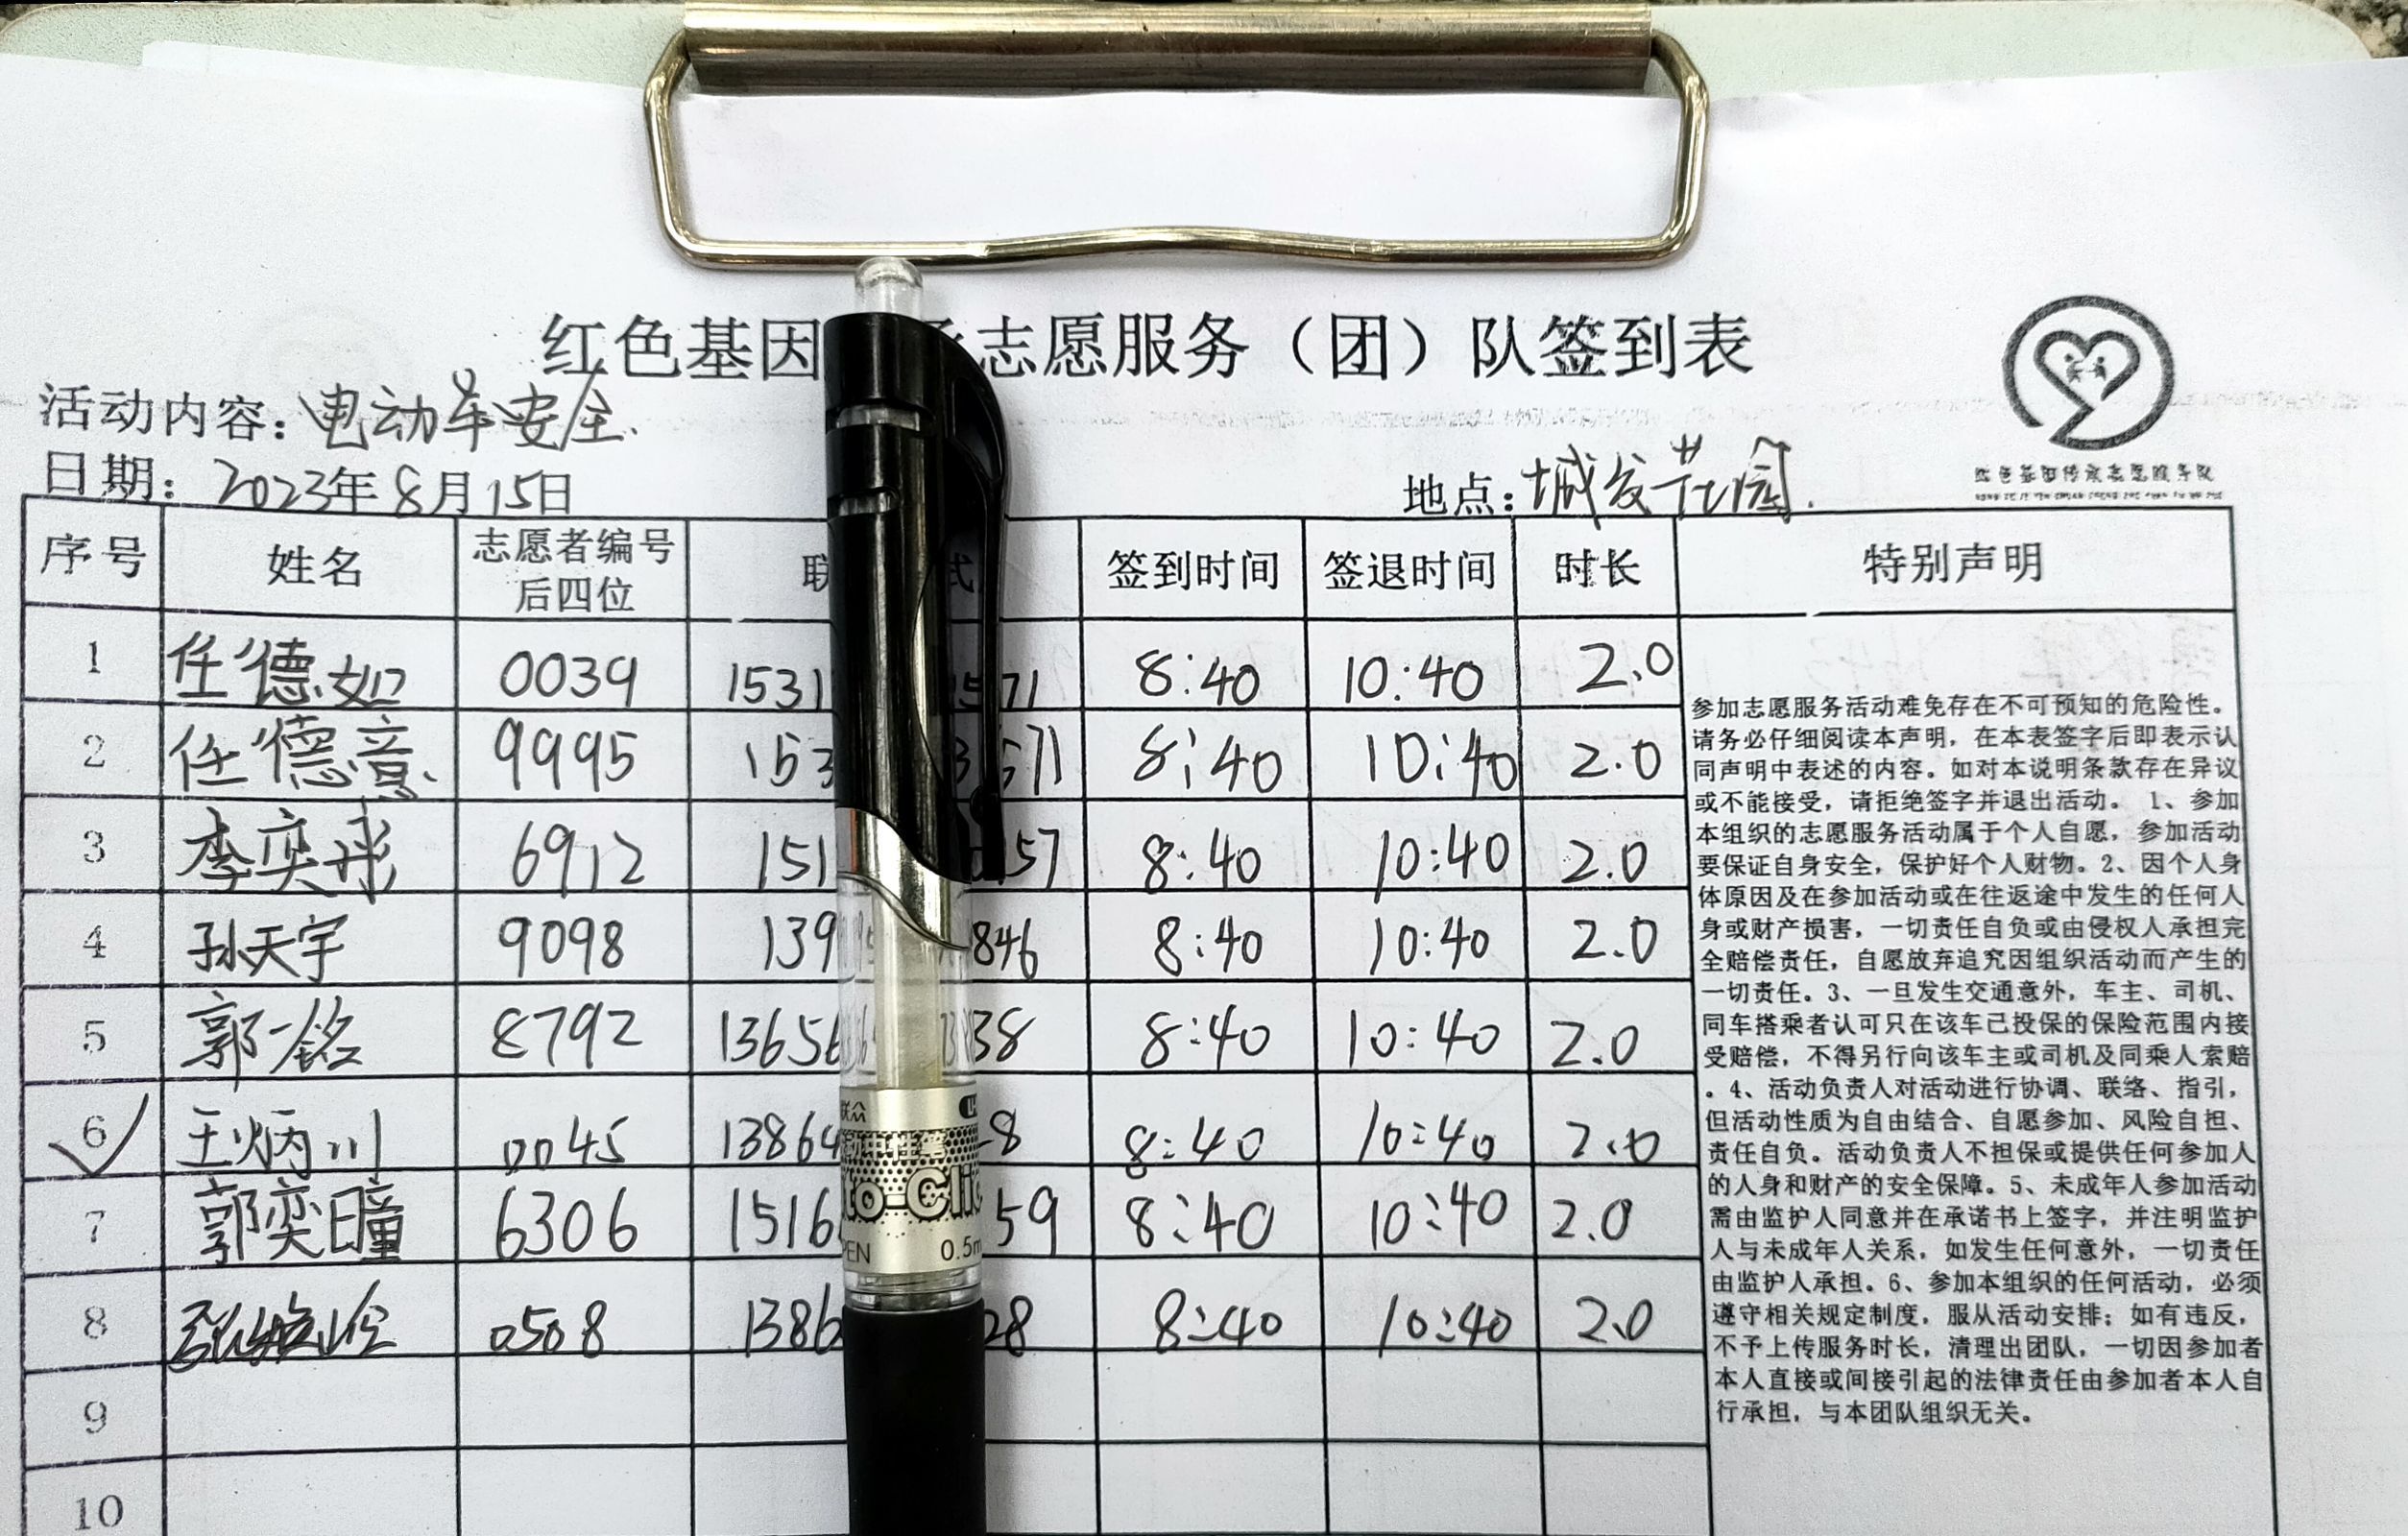 红色基因 承志愿服务（团）队签到表
活动内容：电动车安全.
日期：2023年8月15日
地点：城发花园.
红色基因传承志愿服务队
序号 姓名 志愿者编号后四位 联 式 签到时间 签退时间 时长 特别声明
1 任德如 0039 1531 571 8:40 10:40 2.0
2 任德意 9995 153 3571 8:40 10:40 2.0
3 李奕彤 6912 151 57 8:40 10:40 2.0
4 孙天宇 9098 139 846 8:40 10:40 2.0
5 郭一铭 8792 13656 38 8:40 10:40 2.0
6 王炳川 0045 13864 8 8:40 10:40 2.0
7 郭奕瞳 6306 1516 59 8:40 10:40 2.0
8 0508 1386 28 8:40 10:40 2.0
9
10
参加志愿服务活动难免存在不可预知的危险性。
请务必仔细阅读本声明，在本表签字后即表示认
同声明中表述的内容。如对本说明条款存在异议
或不能接受，请拒绝签字并退出活动。 1、参加
本组织的志愿服务活动属于个人自愿，参加活动
要保证自身安全，保护好个人财物。2、因个人身
体原因及在参加活动或在往返途中发生的任何人
身或财产损害，一切责任自负或由侵权人承担完
全赔偿责任，自愿放弃追究因组织活动而产生的
一切责任。3、一旦发生交通意外，车主、司机、
同车搭乘者认可只在该车已投保的保险范围内接
受赔偿，不得另行向该车主或司机及同乘人索赔
。4、活动负责人对活动进行协调、联络、指引，
但活动性质为自由结合、自愿参加、风险自担、
责任自负。活动负责人不担保或提供任何参加人
的人身和财产的安全保障。5、未成年人参加活动
需由监护人同意并在承诺书上签字，并注明监护
人与未成年人关系，如发生任何意外，一切责任
由监护人承担。6、参加本组织的任何活动，必须
遵守相关规定制度，服从活动安排；如有违反，
不予上传服务时长，清理出团队，一切因参加者
本人直接或间接引起的法律责任由参加者本人自
行承担，与本团队组织无关。
联众
to-Clic
PEN 0.5m